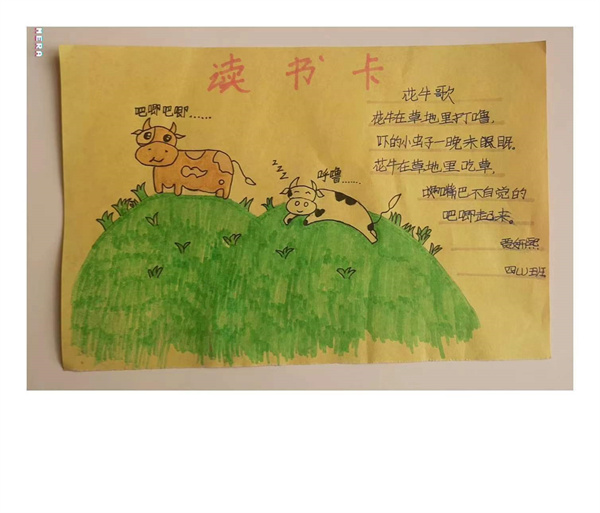 读书卡
花牛歌
吧唧吧唧……
花牛在草地里打噜,
吓的小虫子一晚未眼眠.
zzz
呼噜……
花牛在草地里吃草,
嘴巴不自觉的
吧唧起来。
四(1)班